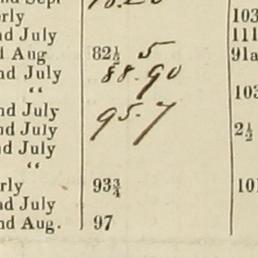 nd July 111
d Aug 82½ 5 91a
nd July 88.90
“ 103
nd July 95.7
nd July 2½
nd July
“
rly 93¾ 101
nd July
nd Aug. 97